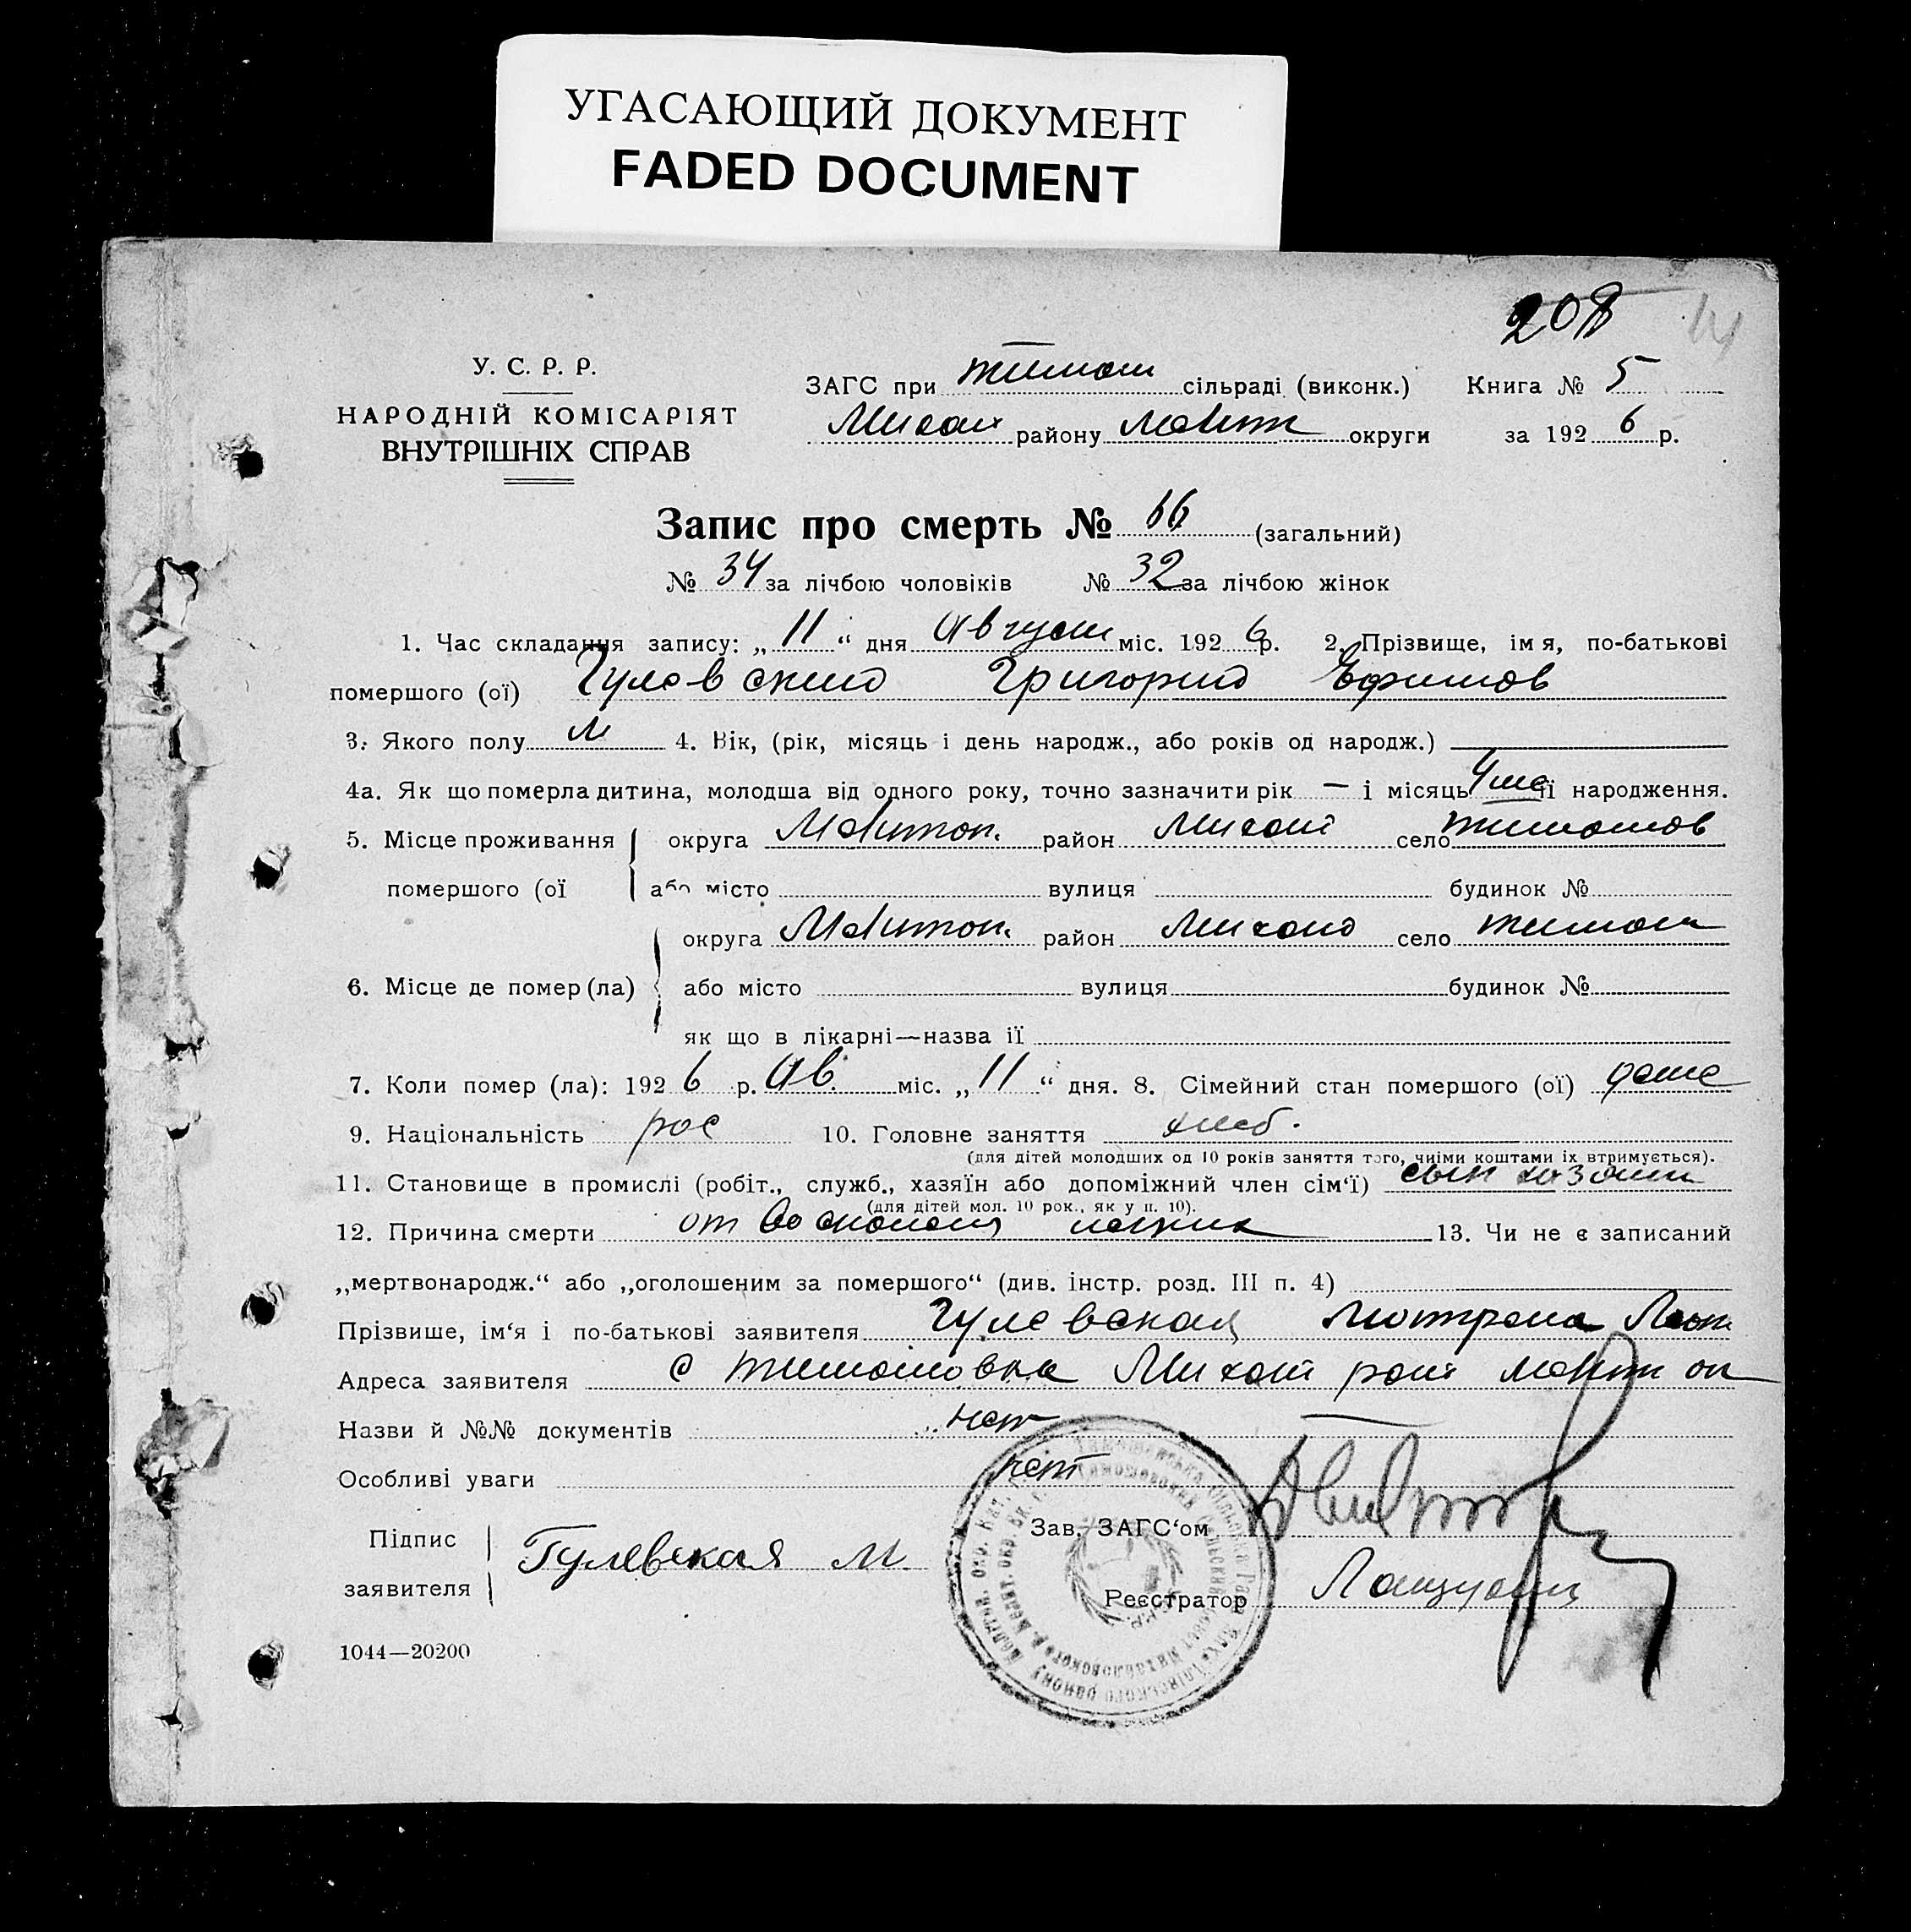 УГАСАЮЩИЙ ДОКУМЕНТ
FADED DOCUMENT
208
14
У. С. Р. Р.
НАРОДНІЙ КОМІСАРІЯТ
ВНУТРІШНІХ СПРАВ
ЗАГС при Тимош сільраді (виконк.) Книга № 5
Михай району Мелит округи за 1926 р.
Запис про смерть № 66 (загальний)
№ 34 за лічбою чоловіків № 32 за лічбою жінок
1. Час складання запису: „11“ дня Август міс. 1926 р. 2. Прізвище, імя, по-батькові
помершого (ої) Гулевский Григорий Ефимов
3. Якого полу М 4. Вік, (рік, місяць і день народж., або років од народж.)
4а. Як що померла дитина, молодша від одного року, точно зазначити рік — і місяць 4 ме її народження.
5. Місце проживання округа Мелитоп. район Михай село Тимошов
помершого (ої або місто вулиця будинок №
округа Мелитоп. район Михай село Тимош
6. Місце де помер (ла) або місто вулиця будинок №
як що в лікарні—назва її
7. Коли помер (ла): 1926 р. Ав. міс. „11“ дня. 8. Сімейний стан помершого (ої)
9. Національність рос 10. Головне заняття хлеб.
(для дітей молодших од 10 років заняття того, чиіми коштами їх втримується).
11. Становище в промислі (робіт., служб., хазяїн або допоміжний член сім‘ї) сын хазяин
(для дітей мол. 10 рок., як у п. 10).
12. Причина смерти от 13. Чи не є записаний
„мертвонародж.“ або „оголошеним за помершого“ (див. інстр. розд. III п. 4)
Прізвише, ім‘я і по-батькові заявителя Гулевская Мотрена
Адреса заявителя с Тимошовка Михай рай Мелит ок
Назви й №№ документів нет
Особливі уваги нет
Підпис
заявителя Гулевская М.
Зав. ЗАГС‘ом
Реєстратор
1044—20200